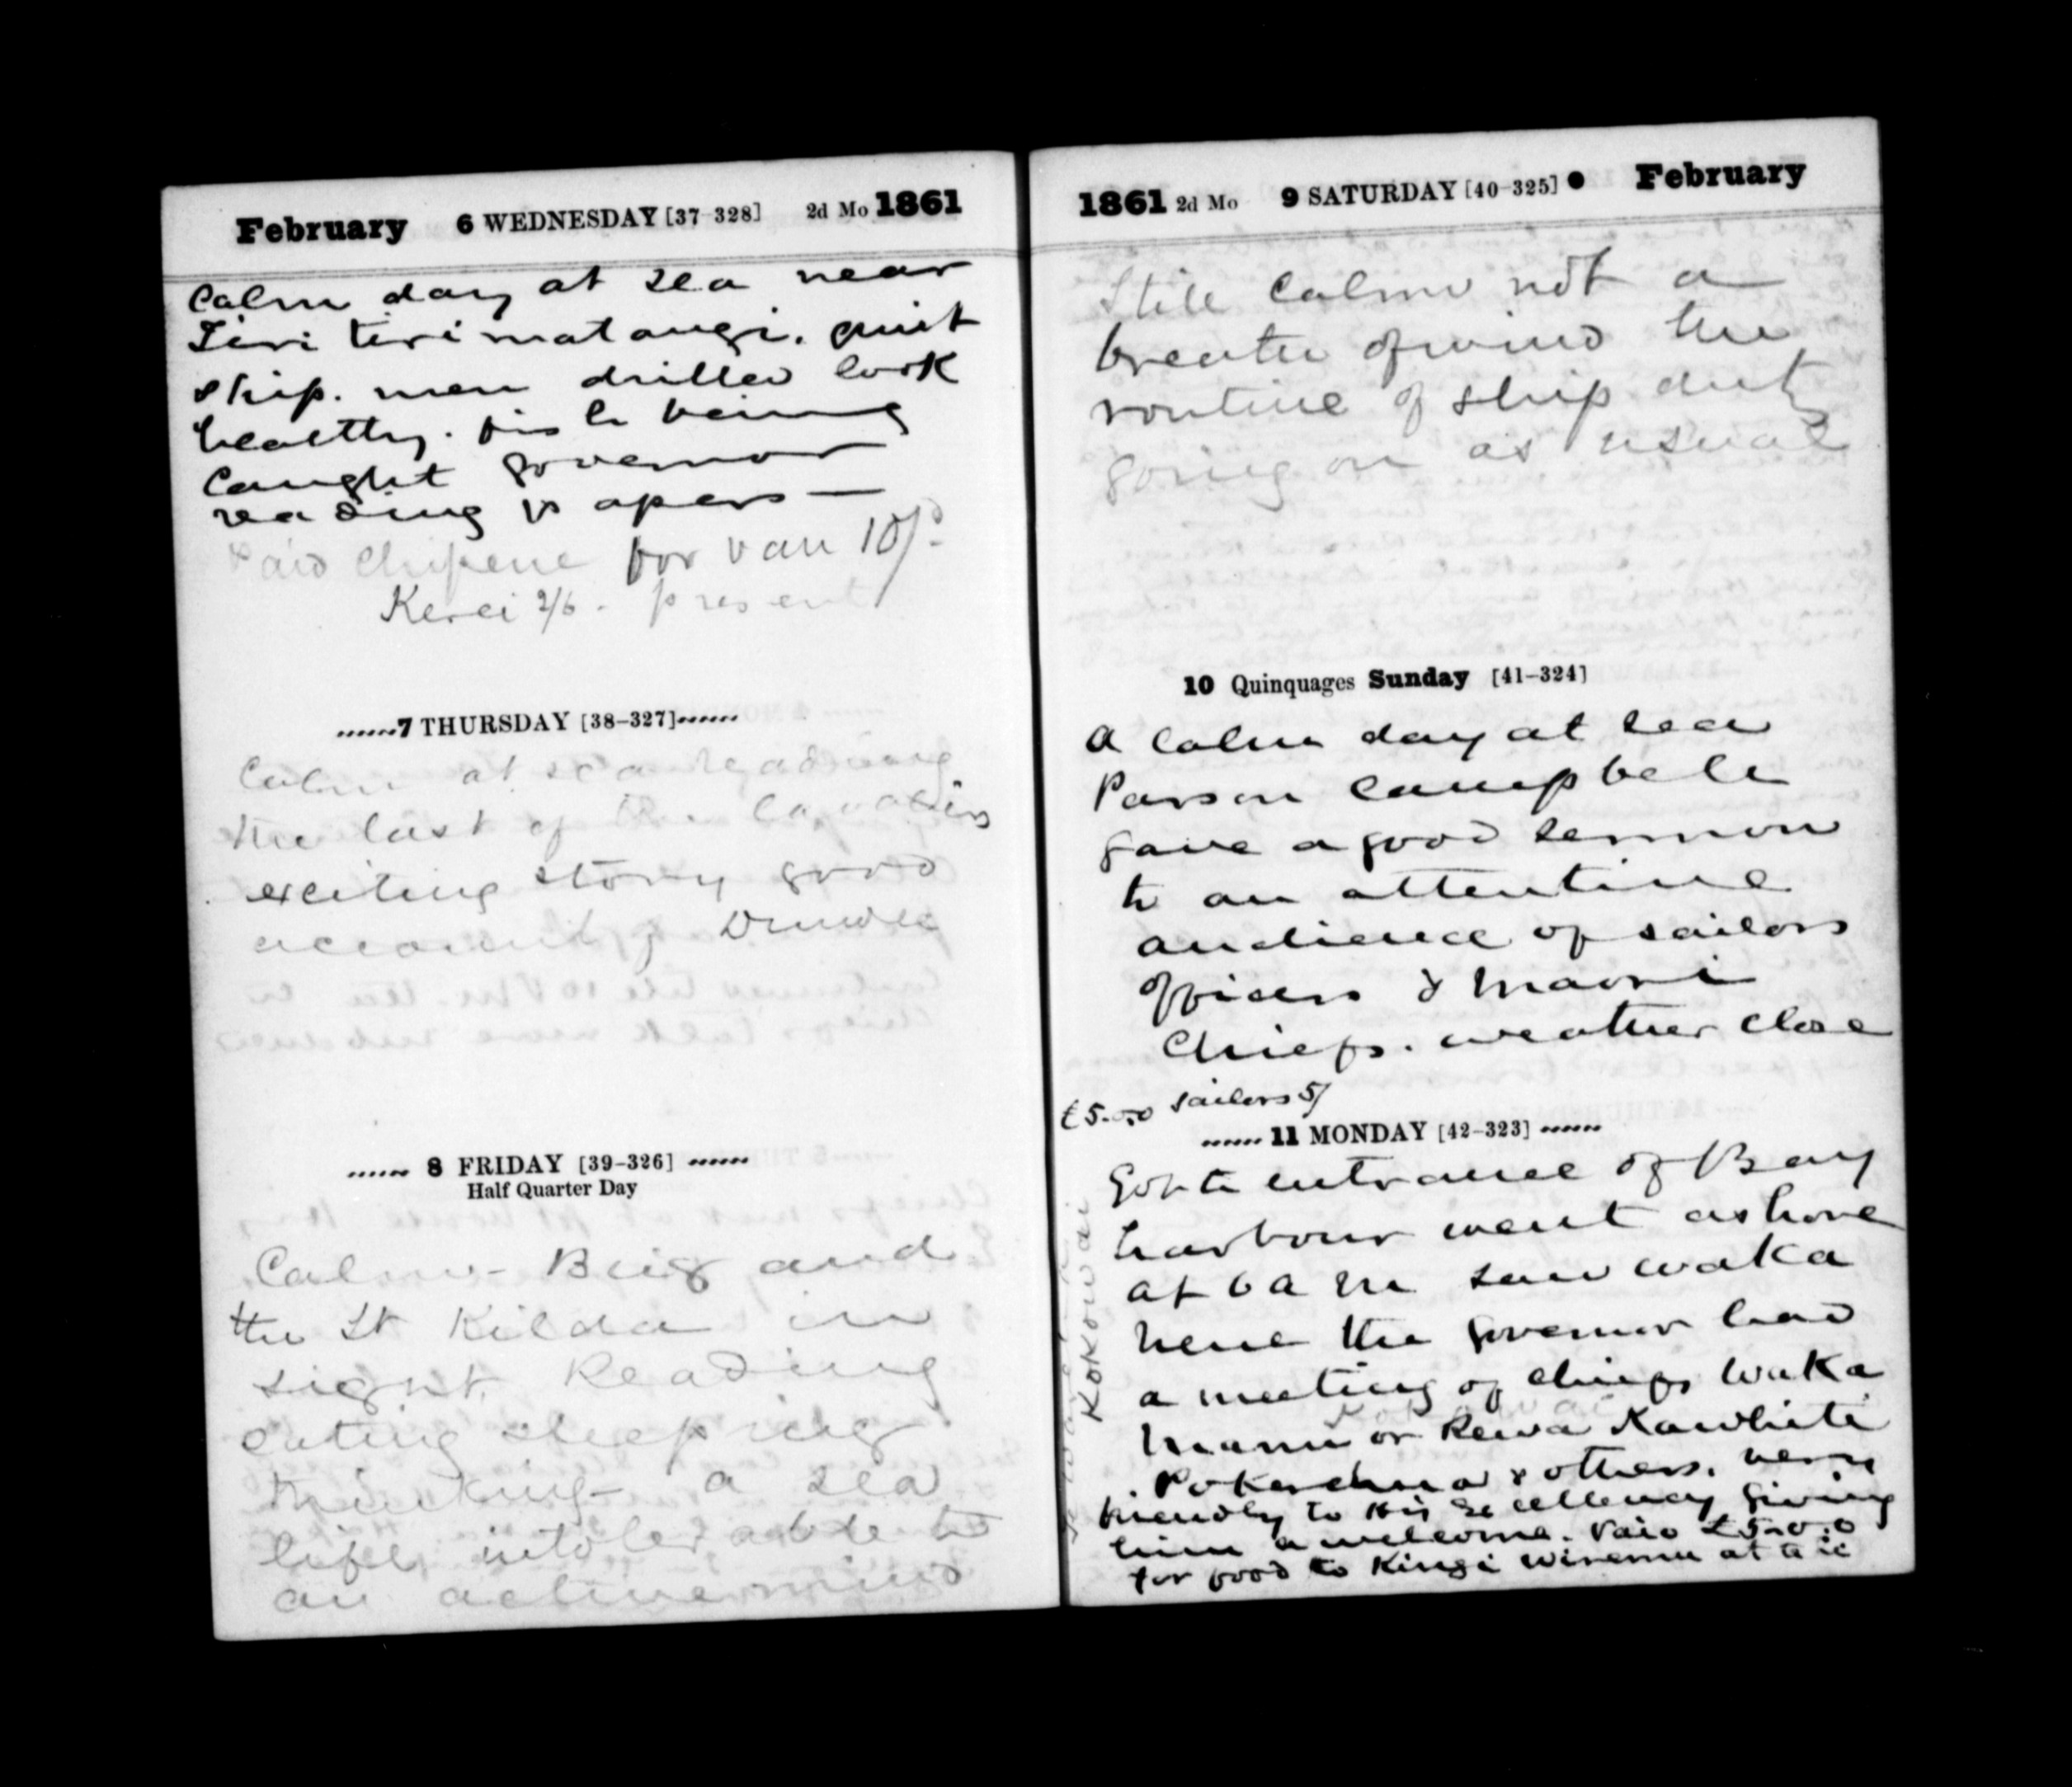 February 6 WEDNESDAY [37-328] 2d Mo 1861
Calm day at sea near
Tiri tiri matangi. quiet
ship. men drilled look
healthy. fish being
caught governor
reading papers —
Paid Chipene for van 10/-
Kerei 2/6. present
7 THURSDAY [38-327]
Calm at sea reading
the last of the Cavaliers
exciting story good
account of
8 FRIDAY [39-326]
Half Quarter Day
Calm - Brig and
the St Kilda in
sight. Reading
eating sleeping
thinking - a sea
life intolerable to
an active mind
1861 2d Mo 9 SATURDAY [40-325] ● February
Still calm not a
breath of wind the
routine of ship duty
going on as usual
10 Quinquages Sunday [41-324]
A calm day at sea
Parson Campbell
gave a good sermon
to an attentive
audience of sailors
officers & Maori
Chiefs. weather close
£5.0.0 sailors 5/
11 MONDAY [42-323]
Got to entrance of Bay
harbour went ashore
at 6 a m saw waka
nene the governor had
a meeting of chiefs waka
Manu or Rewa Kawhiti
& others. very
friendly to His Excellency giving
him a welcome. Paid £5.0.0
for food to Kingi Wiremu at
Kokowai